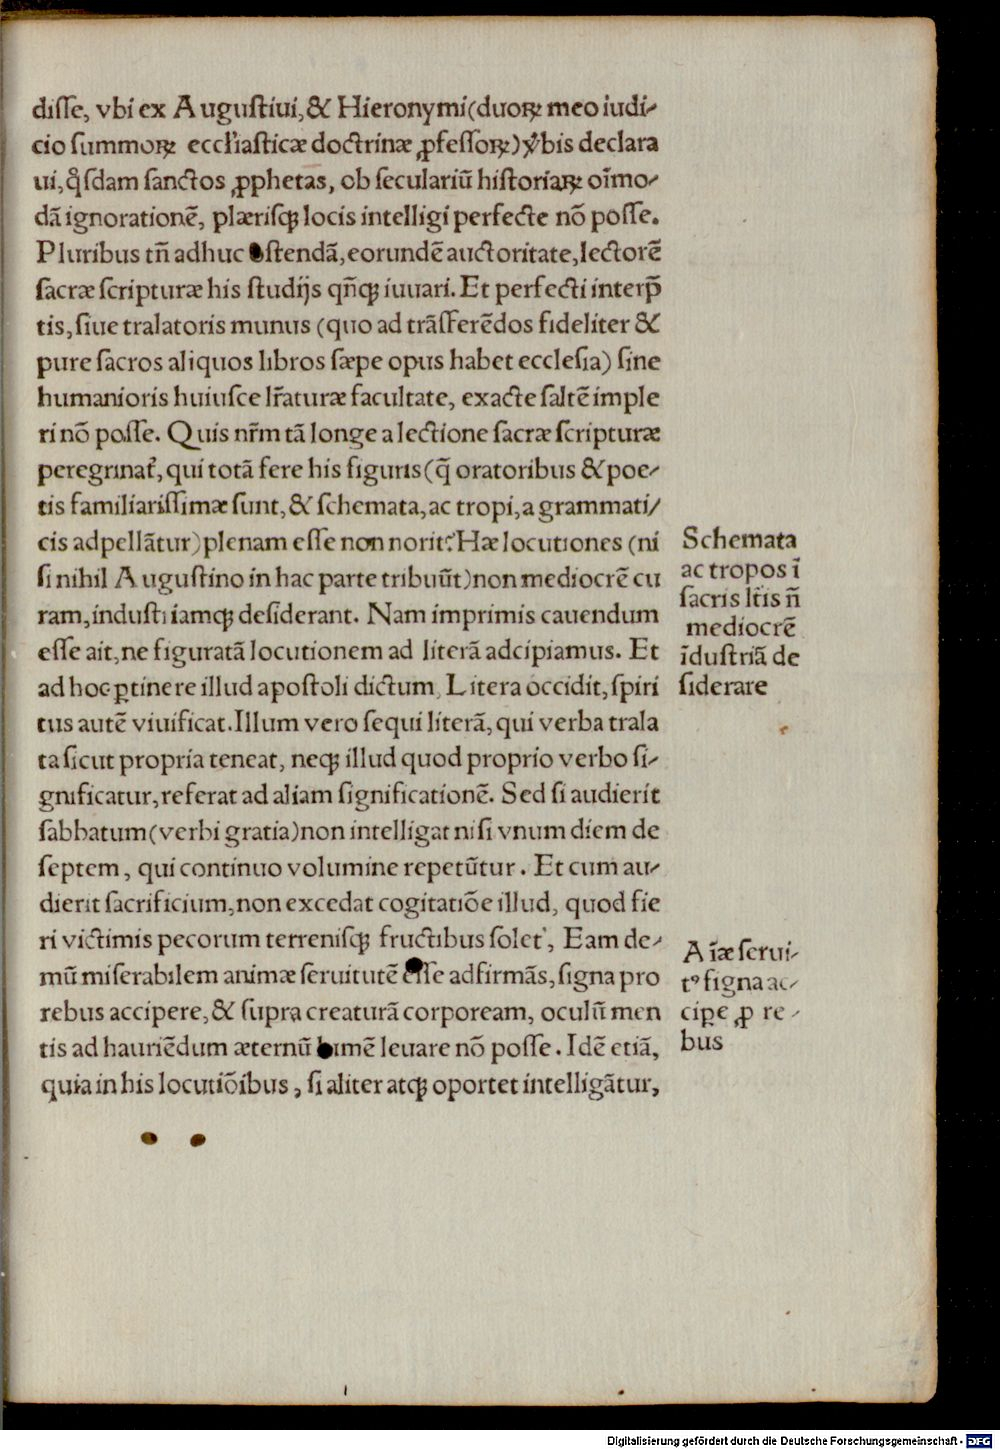 disſe, vbi ex Auguſtiui, & Hieronymi (duoꝝ meo iudi-
cio ſummoꝝ eccłiaſticæ doctrinæ ꝓfeſſoꝝ) v̓bis declara
ui, q̄ſdam ſanctos ꝓphetas, ob ſeculariū hiſtoriaꝝ oīmo-
dā ignorationē, plæriſqꝫ locis intelligi perfecte nō poſſe.
Pluribus tn̄ adhuc oſtendā, eorundē auctoritate, lectorē
ſacræ ſcripturæ his ſtudijs qn̄qꝫ iuuari. Et perfecti interp̄
tis, ſiue tralatoris munus (quo ad trāſferēdos fideliter &
pure ſacros aliquos libros ſæpe opus habet eccleſia) ſine
humanioris huiuſce lr̄aturæ facultate, exacte ſaltē imple
ri nō poſſe. Quis nr̄m tā longe a lectione ſacræ ſcripturæ
peregrinat᷑, qui totā fere his figuris (q̄ oratoribus & poe-
tis familiariſſimæ ſunt, & ſchemata, ac tropi, a grammati/
cis adpellātur) plenam eſſe non norit? Hæ locutiones (ni
ſi nihil Auguſtino in hac parte tribuūt) non mediocrē cu
ram, induſtriamqꝫ deſiderant. Nam imprimis cauendum
eſſe ait, ne figuratā locutionem ad literā adcipiamus. Et
ad hoc ꝑtinere illud apoſtoli dictum, Litera occidit, ſpiri
tus autē viuificat. Illum vero ſequi literā, qui verba trala
ta ſicut propria teneat, neqꝫ illud quod proprio verbo ſi-
gnificatur, referat ad aliam ſignificationē. Sed ſi audierit
ſabbatum (verbi gratia) non intelligat niſi vnum diem de
ſeptem, qui continuo volumine repetūtur. Et cum au-
dierit ſacrificium, non excedat cogitatiōe illud, quod fie
ri victimis pecorum terreniſqꝫ fructibus ſolet, Eam de-
mū miſerabilem animæ ſeruitutē eſſe adfirmās, ſigna pro
rebus accipere, & ſupra creaturā corpoream, oculū men
tis ad hauriēdum æternū lumē leuare nō poſſe. Idē etiā,
quia in his locutiōibus, ſi aliter atqꝫ oportet intelligātur,
Schemata
ac tropos ī
ſacris lr̄is n̄
mediocrē
īduſtriā de
ſiderare
Aīæ ſerui-
tꝰ ſigna ac-
cipe ꝓ re-
bus
Digitalisierung gefördert durch die Deutsche Forschungsgemeinschaft - DFG